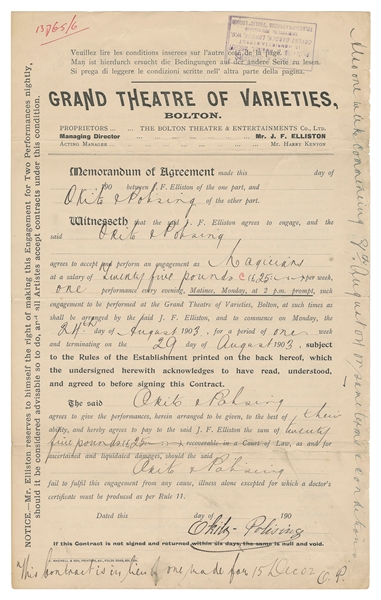 13765/6
Veuillez lire les conditions inserees sur l'autre cote de la page.
Man ist hierdurch ersucht die Bedingungen auf der andere Seite zu lesen.
Si prega di leggere le condizioni scritte nell' altra parte della pagina.
GRAND THEATRE OF VARIETIES,
BOLTON.
PROPRIETORS ... THE BOLTON THEATRE & ENTERTAINMENTS Co., LTD.
Managing Director ... Mr. J. F. ELLISTON
ACTING MANAGER ... MR. HARRY KENYON
Memorandum of Agreement made this day of
190 between J. F. Elliston of the one part, and
Okito & Pohsing of the other part.
Witnesseth that the said J. F. Elliston agrees to engage, and the
said Okito & Pohsing
agrees to accept and perform an engagement as Magicians
at a salary of twenty five pounds £ 25 per week,
one performance every evening, Matinee, Monday, at 2 p.m. prompt, such
engagement to be performed at the Grand Theatre of Varieties, Bolton, at such times as
shall be arranged by the said J. F. Elliston, and to commence on Monday, the
24th day of August 1903, for a period of one week
and terminating on the 29 day of August 1903, subject
to the Rules of the Establishment printed on the back hereof, which
the undersigned herewith acknowledges to have read, understood,
and agreed to before signing this Contract.
The said Okito & Pohsing
agrees to give the performances, herein arranged to be given, to the best of their
ability, and hereby agrees to pay to the said J. F. Elliston the sum of twenty
five pounds £25 recoverable in a Court of Law, as and for
ascertained and liquidated damages, should the said
Okito & Pohsing
fail to fulfil this engagement from any cause, illness alone excepted for which a doctor's
certificate must be produced as per Rule 11.
Dated this day of 190
Okito-Pohsing
If this Contract is not signed and returned within six days, the same is null and void.
This contract is in lieu of one made for 15 Dec 02 O. P.
NOTICE.—Mr. Elliston reserves to himself the right of making this Engagement for Two Performances nightly,
should it be considered advisable so to do, and all Artistes accept contracts under this condition.
Also one week commencing 8th August 04 same terms & conditions